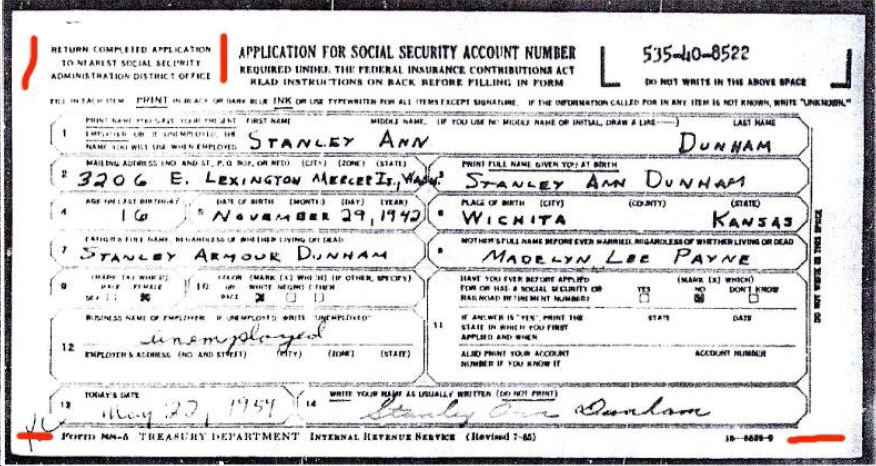 RETURN COMPLETED APPLICATION
TO NEAREST SOCIAL SECURITY
ADMINISTRATION DISTRICT OFFICE
APPLICATION FOR SOCIAL SECURITY ACCOUNT NUMBER
REQUIRED UNDER THE FEDERAL INSURANCE CONTRIBUTIONS ACT
READ INSTRUCTIONS ON BACK BEFORE FILLING IN FORM
535-40-8522
DO NOT WRITE IN THE ABOVE SPACE
FILL IN EACH ITEM. PRINT IN BLACK OR DARK BLUE INK OR USE TYPEWRITER FOR ALL ITEMS EXCEPT SIGNATURE. IF THE INFORMATION CALLED FOR IN ANY ITEM IS NOT KNOWN, WRITE "UNKNOWN."
1
FIRST NAME MIDDLE NAME, (IF YOU USE NO MIDDLE NAME OR INITIAL, DRAW A LINE—) LAST NAME
NAME YOU WILL USE WHEN EMPLOYED
STANLEY ANN DUNHAM
2
MAILING ADDRESS (NO AND ST, P.O. BOX, OR RFD) (CITY) (ZONE) (STATE)
3206 E. LEXINGTON MERCER IS., WASH.
3
PRINT FULL NAME GIVEN YOU AT BIRTH
STANLEY ANN DUNHAM
4
AGE ON LAST BIRTHDAY
16
5
DATE OF BIRTH (MONTH) (DAY) (YEAR)
NOVEMBER 29, 1942
6
PLACE OF BIRTH (CITY) (COUNTY) (STATE)
WICHITA KANSAS
7
FATHER'S FULL NAME, REGARDLESS OF WHETHER LIVING OR DEAD
STANLEY ARMOUR DUNHAM
8
MOTHER'S FULL NAME BEFORE EVER MARRIED, REGARDLESS OF WHETHER LIVING OR DEAD
MADELYN LEE PAYNE
9
(MARK (X) WHICH)
MALE FEMALE
SEX
10
COLOR (MARK (X) WHICH) (IF OTHER, SPECIFY)
OR WHITE NEGRO OTHER
RACE
11
HAVE YOU EVER BEFORE APPLIED (MARK (X) WHICH)
FOR OR HAD A SOCIAL SECURITY OR YES NO DON'T KNOW
RAILROAD RETIREMENT NUMBER?
IF ANSWER IS "YES", PRINT THE STATE DATE
STATE IN WHICH YOU FIRST
APPLIED AND WHEN
ALSO PRINT YOUR ACCOUNT ACCOUNT NUMBER
NUMBER IF YOU KNOW IT
12
BUSINESS NAME OF EMPLOYER IF UNEMPLOYED WRITE "UNEMPLOYED"
unemployed
EMPLOYER'S ADDRESS (NO AND STREET) (CITY) (ZONE) (STATE)
13
TODAY'S DATE
May 22, 1959
14
WRITE YOUR NAME AS USUALLY WRITTEN (DO NOT PRINT)
Stanley Ann Dunham
DO NOT WRITE IN THIS SPACE
FORM SS-5 TREASURY DEPARTMENT INTERNAL REVENUE SERVICE (Revised 7-55)